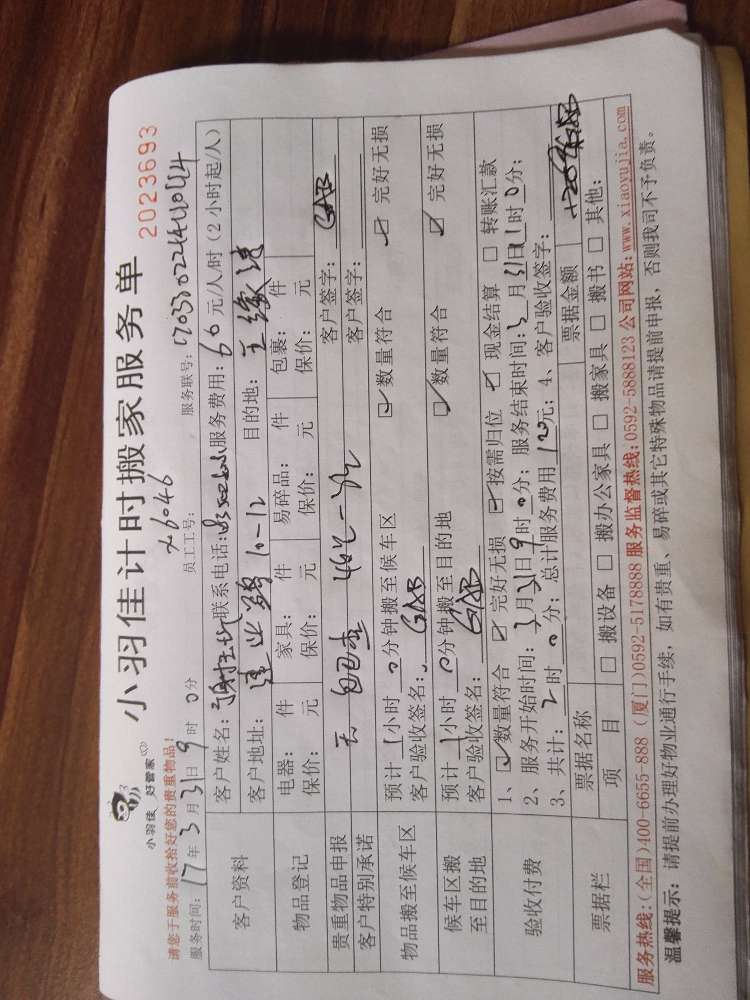 小羽佳 好管家
小羽佳计时搬家服务单
2023693
请您于服务前收拾好您的贵重物品!
服务时间: 17年3月31日9时0分 员工工号: x6046 服务联号: 1703302244044
客户资料 客户姓名: 联系电话: 服务费用: 60元/人/时(2小时起/人)
客户地址: 建业路10-12 目的地:
物品登记 电器: 件 家具: 件 易碎品: 件 包裹: 件
保价: 元 保价: 元 保价: 元 保价: 元
贵重物品申报 无 客户签字:
客户特别承诺 客户签字:
物品搬至候车区 预计1小时0分钟搬至候车区 ☑数量符合 ☑完好无损
客户验收签名:
候车区搬至目的地 预计1小时0分钟搬至目的地 ☑数量符合 ☑完好无损
客户验收签名:
验收付费 1、☑数量符合 ☑完好无损 ☑按需归位 ☑现金结算 □转账汇款
2、服务开始时间: 3月31日9时0分; 服务结束时间: 3月31日11时0分;
3、共计: 2时0分; 总计服务费用120元; 4、客户验收签字:
票据栏 票据名称 票据金额
项 目 □搬设备 □搬办公家具 □搬家具 □搬书 □其他:
服务热线:(全国)400-6655-888 (厦门)0592-5178888 服务监督热线:0592-5888123 公司网站: www.xiaoyujia.com
温馨提示: 请提前办理好物业通行手续, 如有贵重、易碎或其它特殊物品请提前申报, 否则我司不予负责。